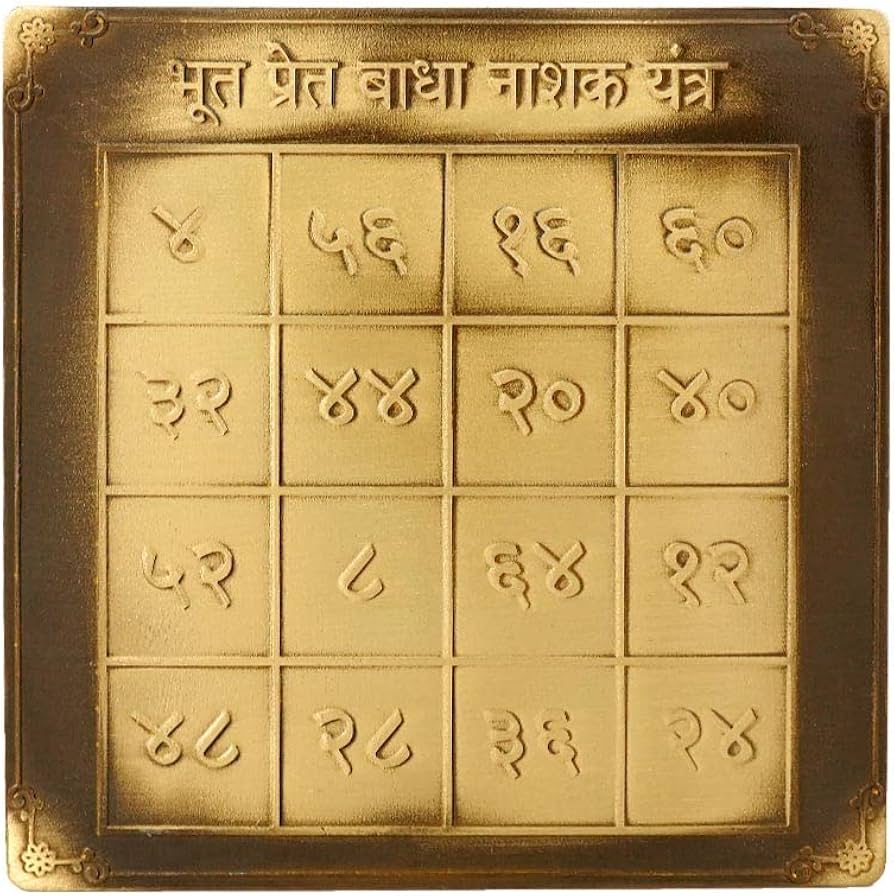 भूत प्रेत बाधा नाशक यंत्र
४ ५६ १६ ६०
३२ ४४ २० ४०
५२ ८ ६४ १२
४८ २८ ३६ २४